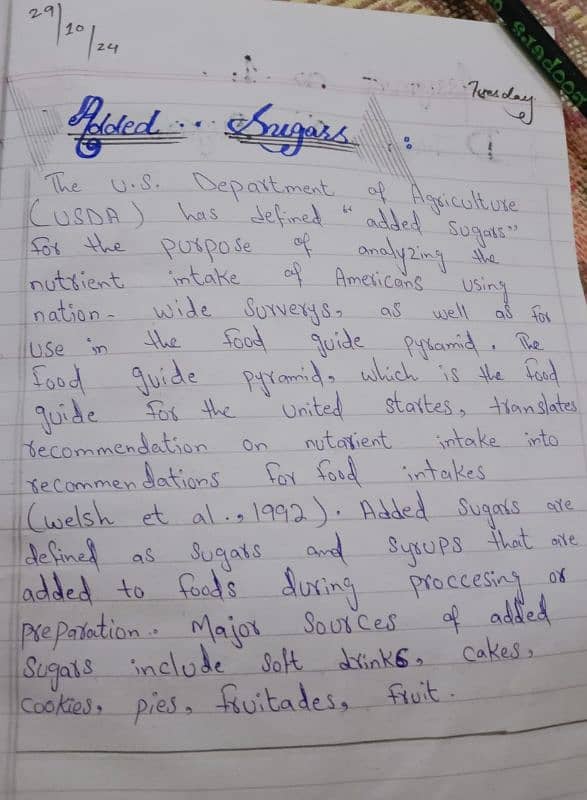 29/10/24
Tuesday
Added Sugars :
The U.S. Department of Agriculture
(USDA) has defined "added sugars"
for the purpose of analyzing the
nutrient intake of Americans using
nation- wide Surverys, as well as for
use in the food guide pyramid. The
food guide pyramid, which is the food
guide for the united startes, translates
recommendation on nutarient intake into
recommendations for food intakes
(welsh et al., 1992). Added Sugars are
defined as Sugars and Syrups that are
added to foods during proccesing or
preparation. Major Sources of added
Sugars include soft drinks, cakes,
cookies, pies, fruitades, fruit.